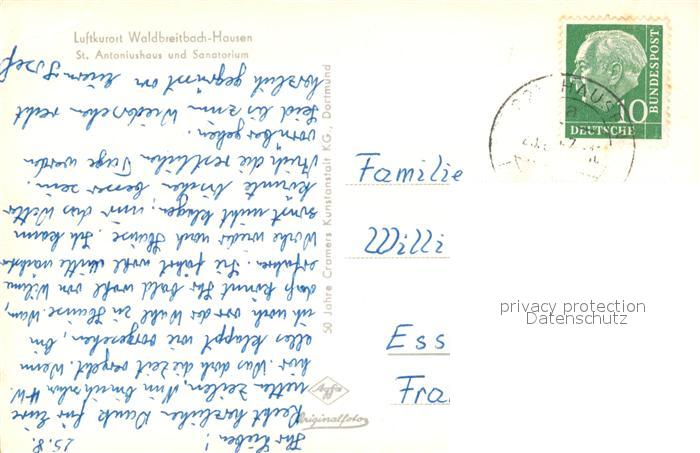 Luftkurort Waldbreitbach-Hausen
St. Antoniushaus und Sanatorium
25.8.
Ihr Lieben!
Recht herzlichen Dank für Eure
netten Zeilen, bin schon 4 W.
hier. Was doch die Zeit vergeht. Wenn
alles klappt wie vorgesehen, bin
ich noch vor der Wahl zu Hause. Wann,
das könnt Ihr bald wohl von Wilma
erfahren. Sie fährt wohl Mitte nächste
Woche wieder nach Hause. Ich kann
sonst nicht klagen, nur das Wetter
könnte bischen besser sein.
Auch die restlichen Tage werden
vorüber gehen.
Seid bis zum Wiedersehen recht
herzlich gegrüsst von Eurem Josef
50 Jahre Cramers Kunstanstalt KG., Dortmund
Agfa
Originalfoto
HAUSE
10
DEUTSCHE
BUNDESPOST
Familie
Willi
Ess
Fra
privacy protection
Datenschutz